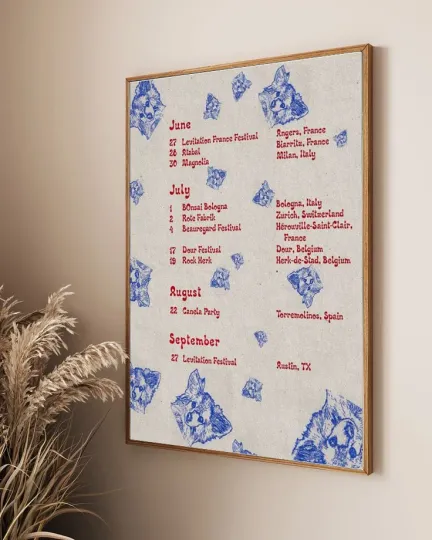 June
27 Levitation France Festival Angers, France
28 Atabal Biarritz, France
30 Magnolia Milan, Italy
July
1 BOnsai Bologna Bologna, Italy
2 Rote Fabrik Zurich, Switzerland
4 Beauregard Festival Hérouville-Saint-Clair,
France
17 Dour Festival Dour, Belgium
19 Rock Herk Herk-de-Stad, Belgium
August
22 Canela Party Torremolinos, Spain
September
27 Levitation Festival Austin, TX